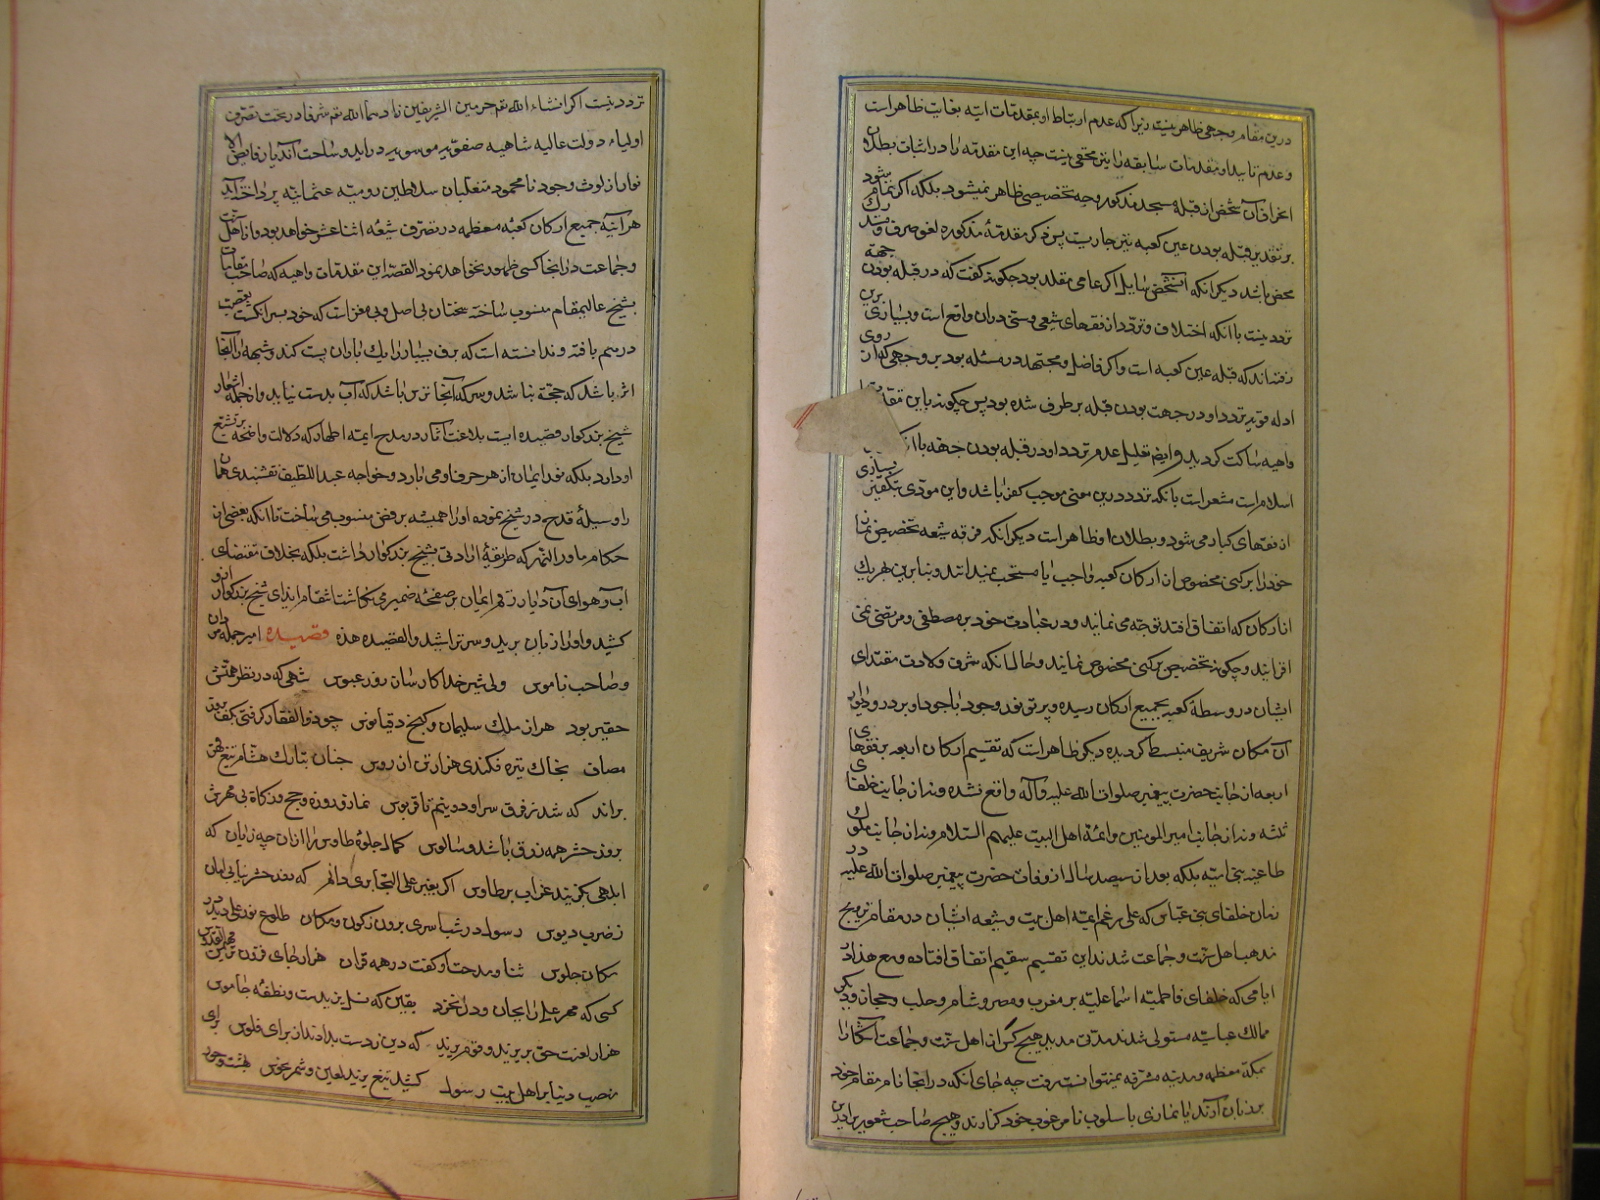 درین مقام وجهی ظاهر نیست زیرا که عدم ارتباط او بمقدمات اتیه بغایت ظاهر است
و عدم تایید او مقدمات سابقه را نیز مخفی نیست چه این مقدمه را در اثبات بطلان
انحراف آن شخص از قبله مسجد مذکور وجه تخصیصی ظاهر نمیشود بلکه اکر تمام شود
بر تقدیر قبله بودن عین کعبه نیز جاریست پس ذکر مقدمهٔ مذکوره لغو صرف و
محض باشد دیکر انکه شخص سایل اکر عامی مقلد بود چکونه کفت که در قبله بودن جهة
تردد نیست با انکه اختلاف و تردد از فقهای شیعی و سنی در ان واقع است و بسیاری برین
رفته اند که قبله عین کعبه است و اکر فاضل و مجتهد در مسئله بود بر وجهی که از روی
ادله قویه تردد او در جهت بودن قبله بر طرف شده بود پس چکونه باین
واهیه ساکت کردید و ایضا تعلیل عدم تردد او در قبله بودن جهة با
اسلام است مشعر است بانکه تردد درین معنی موجب کفر باشد و این مودی بتکفیر بسیاری
از فقهای کبار می شود و بطلان او ظاهر است دیکر انکه فرقه شیعه تخصیص نماز
خود را برکنی مخصوص از ارکان کعبه واجب یا مستحب نمیدانند و بنابرین بهریک
از ارکان که اتفاق افتد توجه می نمایند و در عبادت خود بره مصطفی و مرتضی می
افزایند و چکونه تخصیص برکنی مخصوص نمایند و حال انکه شرف ولادت مقتدای
ایشان در وسطهٔ کعبه بجمیع ارکان رسیده و پرتو نور وجود باجود او بر در و دیوار
آن مکان شریف منبسط کردیده دیکر ظاهر است که تقسیم ارکان اربعه بر فقهای
اربعه از جانب حضرت پیغمبر صلوات الله علیه و آله واقع نشده و نه از جانب خلفای
ثلثه و نه از جانب امیرالمومنین و ائمهٔ اهل البیت علیهم السلام و نه از جانب ملوک
طاغیه بنی امیه بلکه بعد از سیصد سال از وفات حضرت پیغمبر صلوات الله علیه در
زمان خلفای بنی عباس که علی رغم ائمه اهل بیت و شیعه ایشان در مقام ترویج
مذهب اهل سنت و جماعت شدند این تقسیم سقیم اتفاق افتاده و مع هذا در
ایامی که خلفای فاطمیه اسماعلیه بر مغرب و مصر و شام و حلب و حجاز و دیکر
ممالک عباسیه مستولی شدند مدتی مدید هیچ کس از اهل سنت و جماعت آشکارا
بمکه معظمه و مدینه مشرفه نمیتوانست رفت چه جای آنکه در انجا نام مقام خود
بر زبان آرند یا نمازی باسلوب نامرغوب خود کذارند و هیچ صاحب شعور را درین
تردد نیست اکر انشاء الله تع حرمین الشریفین زادهما الله تع شرفا در تحت تصرف
اولیاء دولت عالیه شاهیه صفویه موسویه درآید و ساحت آندیار فایض الا
نوار از لوث وجود نامحمود متغلبان سلاطین رومیه عثمانیه پرداخته آید
هر آینه جمیع ارکان کعبه معظمه در تصرف شیعه اثنا عشر خواهد بود و از اهل سنت
و جماعت در انجا کسی ظهور نخواهد نمود القصه این مقدمات واهیه که صاحب مقامات
بشیخ عالیمقام منسوب ساخته سخنان بی اصل و بی مغز است که خود بسر انکشت تعصب
درهم بافته و ندانسته است که برف بسیار را یک باران پست کند و شبهه را آنجا
اثر باشد که حجت نباشد و سرکه آنجا ترش باشد که آب بدست نیاید و از جمله اشعار
شیخ بزرکوار قصیده ایست بلاغت آثار در مدح ائمه اطهار که دلالت واضحه بر تشیع
او دارد بلکه نور ایمان از هر حرف او می بارد و خواجه عبداللطیف نقشبندی همان
را وسیلهٔ قدح در شیخ نموده او را همیشه برفض منسوب می ساخت تا انکه بعضی از
حکام ماوراالنهر که طریقهٔ ارادتی بشیخ بزرکوار داشت بلکه بخلاف مقتضای
آب و هوای آن دیار رقم ایمان بر صفحهٔ ضمیر می نکاشت انتقام ایذای شیخ بزرکوار ازو
کشید و او را زبان برید و سر تراشید والقصیده هذه قصیده امیر جمله
و صاحب ناموس ولی شیر خدا کارسان روز عبوس شهی که در نظر همتش
حقیر بود هزار ملک سلیمان و کنج دقیانوس چو ذوالفقار کرفتی بکف بروز
مصاف بخاک تیره فکندی هزار تن از روس چنان بتارک هشام تیغ قهر
براند که شد ز فرق سر او دو نیم تا قربوس نماز و روزه و حج و زکاة بی مهرش
بروز حشر همه زرق باشد و سالوس کمال جلوهٔ طاوس را ازان چه زیان که
ابلهی بکزیند غراب بر طاوس اکر بغیر علی التجا بری دانم که روز حشر نیابی امان
ز ضرب دبوس رسول در شب اسری برون ز کون و مکان طلوع نور علی دید در
مکان جلوس ثنا و مدحت او کفت در همه قران هزار جای فزون تر
کسی که مهر علی را بجان و دل نخرد یقین که نسل یزیدست و نطفهٔ جاموس
هزار لعنت حق بر یزید و قوم یزید که دین ز دست بدادند از برای فلوس برای
نصیب دنیا بر اهل بیت رسول کشید تیغ یزید لعین و شمر نحوس بهشت و حور